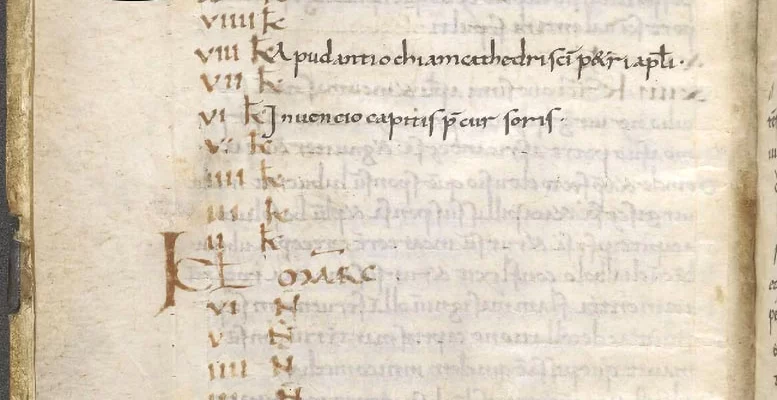 viiii k̄
viii k̄ Apud antiochiam cathedri sc̄i p&ri apl̄i·
vii k̄
vi k̄ Inuencio capitis p̄cursoris·
v k̄
iiii k̄
iii k̄
ii k̄
Kl̄ mārc
vi N̄
v N̄
iiii N̄
iii N̄